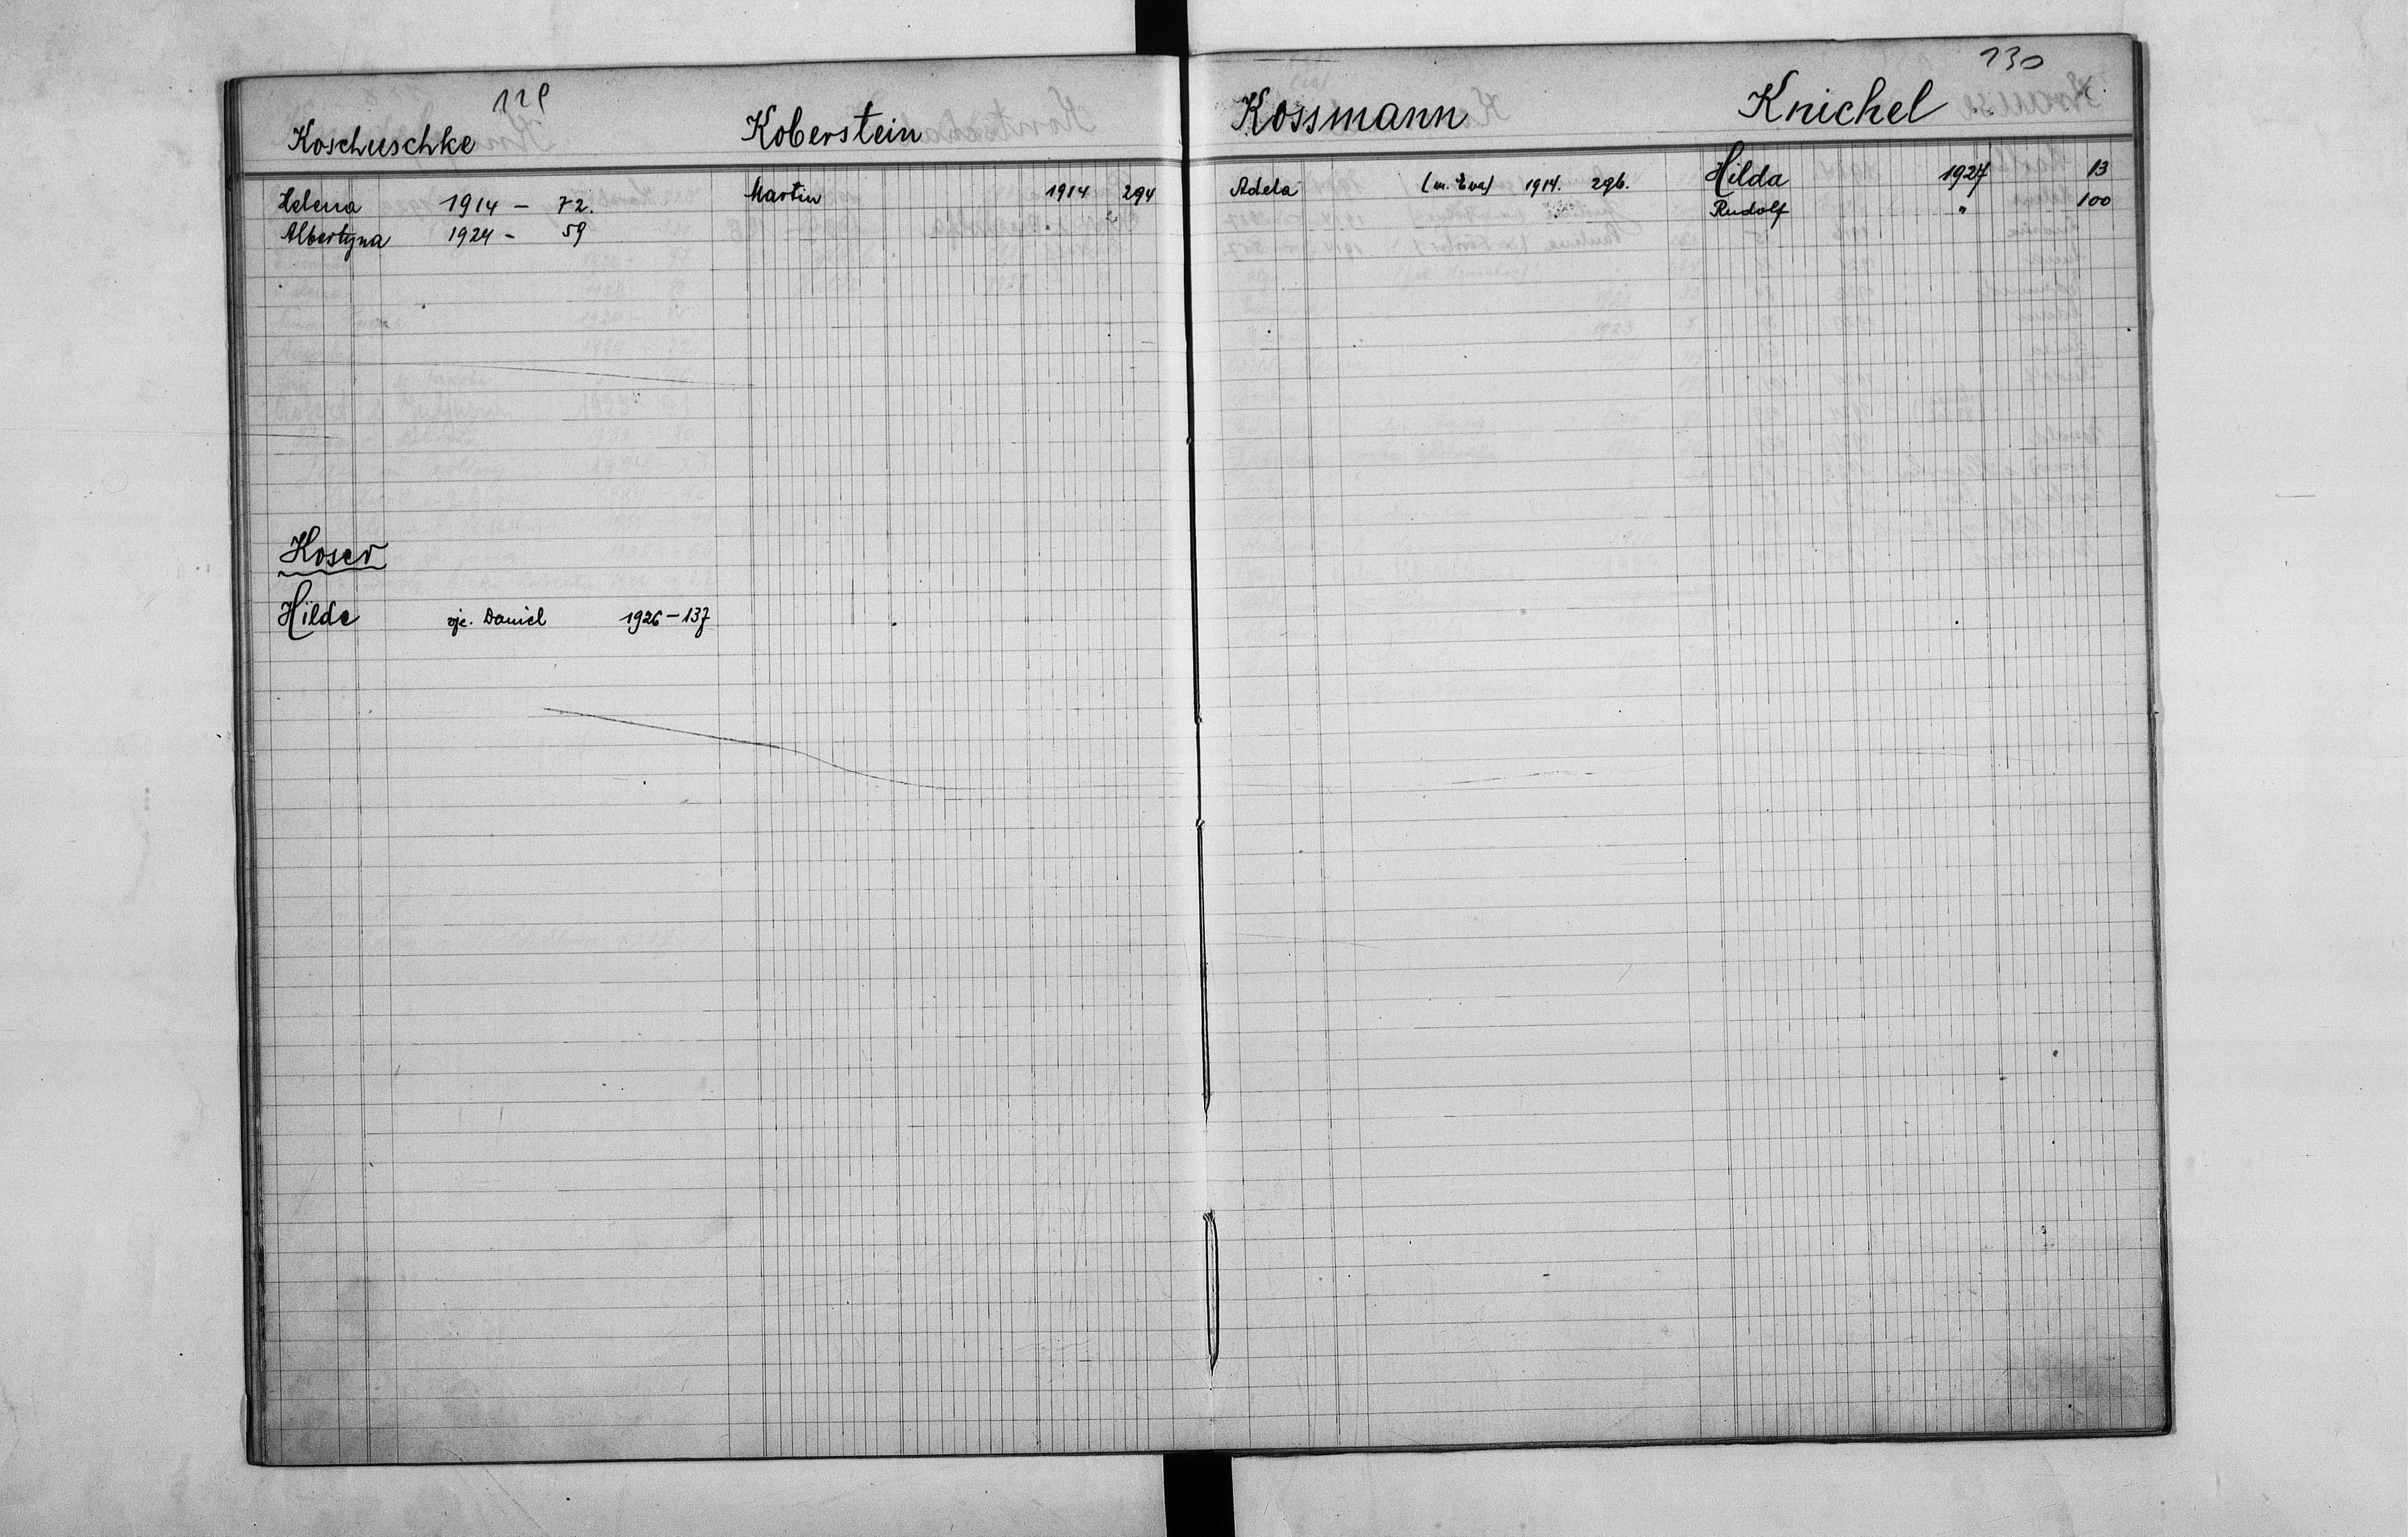 129
Koschuschke Koberstein
Helena 1914 – 72. Martin 1914 294
Albertyna 1924 – 59
Koser
Hilde oje. Daniel 1926 – 137
130
Kossmann Knichel
Adela (m. Eva) 1914. 296. Hilda 1927 13
Rudolf " 100